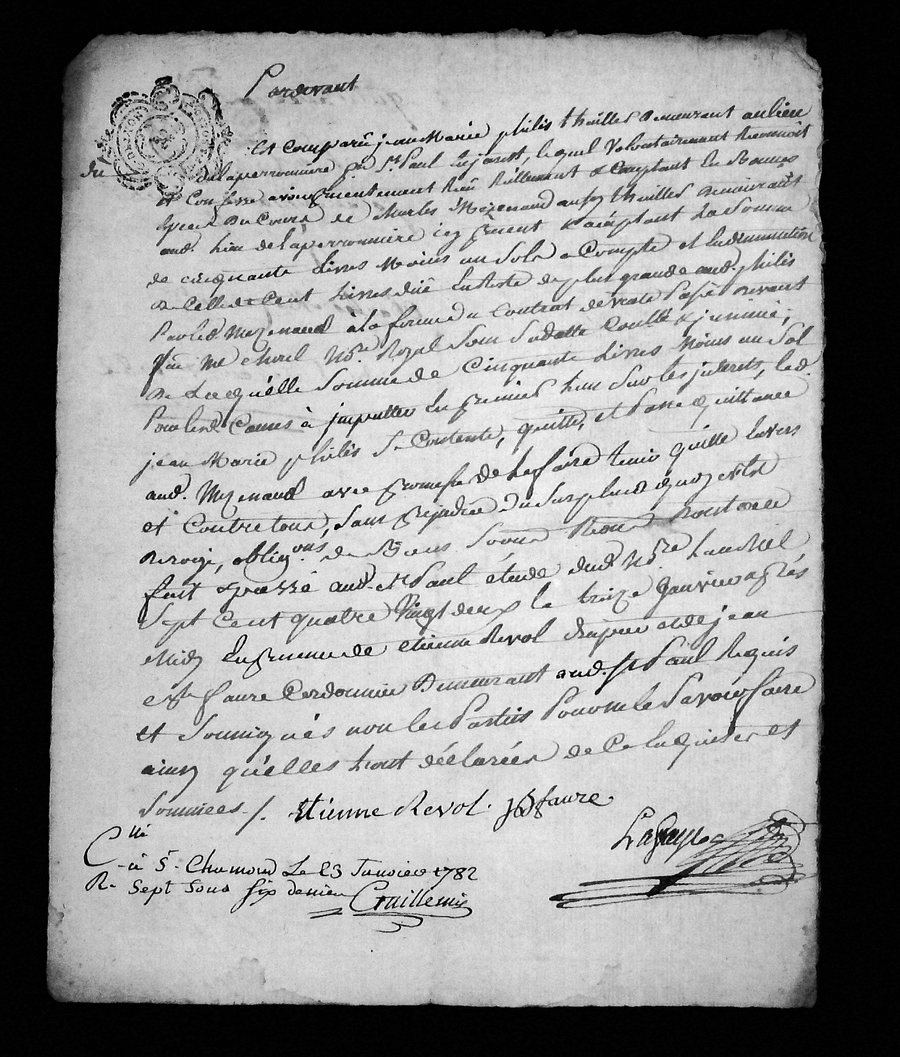 Pardevant
Est Comparû jean Marie philis thuillier demeurant au lieu
du de laperronniere St. Paul en jarest, lequel Volontairement Reconnoit
et Confesse avoir présentement Reçu Réellement & Comptant En Bonnes
Especes du Cours de Charles Mezenaud aussy thuillier demeurant
aud. lieu de laperronniere icy présent & acceptant La Somme
de cinquante Livres Moins un Sols a Compte et En diminution
de Celle de Cent Livres düe En Reste de plus grande aud. philis
Par led. Mezenaud à la forme du Contrat de vente Passé devant
Me Not.re Royal Sous Sa datte Controllé & insinué,
de Laquelle Somme de Cinquante Livres Moins un Sol
Pour les Causes à imputter En premier lieu Sur les interets, led.
jean Marie philis Se Contente, quitte, et Passe quittance
aud. Mezenaud avec promesse de Le faire tenir quitte Envers
et Contre tous, Sans prejudice du Surplus a quoy n'Est
derogé, oblig.ons de Biens Soum. Renon.
fait & passé aud. St. Paul étude dud. No.re L'an Mil
Sept Cent quatre Vingt deux le treize janvier après
Midy En presence de etienne Revol et de jean
B.te faure Cordonnier Demeurant aud. St. Paul Requis
et Soussignés non les Parties Pour ne le Savoir faire
ainsy qu'elles L'ont déclarées de Ce Enquises et
Sommées /. Etienne Revol. JB faure.
C.llé
à St. Chamond Le 23 Janvier 1782
R. Sept Sous six deniers